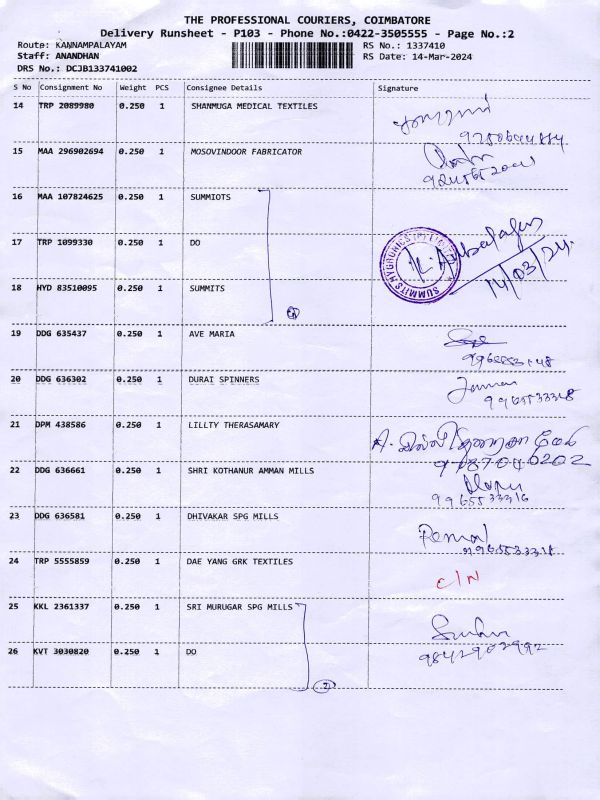 THE PROFESSIONAL COURIERS, COIMBATORE
Delivery Runsheet - P103 - Phone No.:0422-3505555 - Page No.:2
Route: KANNAMPALAYAM RS No.: 1337410
Staff: ANANDHAN RS Date: 14-Mar-2024
DRS No.: DCJB133741002
S No Consignment No Weight PCS Consignee Details Signature
14 TRP 2089980 0.250 1 SHANMUGA MEDICAL TEXTILES
15 MAA 296902694 0.250 1 MOSOVINDOOR FABRICATOR
16 MAA 107824625 0.250 1 SUMMIOTS
17 TRP 1099330 0.250 1 DO
14/03/24.
18 HYD 83510095 0.250 1 SUMMITS
19 DDG 635437 0.250 1 AVE MARIA
20 DDG 636302 0.250 1 DURAI SPINNERS
9965533318
21 DPM 438586 0.250 1 LILLTY THERASAMARY
22 DDG 636661 0.250 1 SHRI KOTHANUR AMMAN MILLS
9965533316
23 DDG 636581 0.250 1 DHIVAKAR SPG MILLS
24 TRP 5555859 0.250 1 DAE YANG GRK TEXTILES
C/N
25 KKL 2361337 0.250 1 SRI MURUGAR SPG MILLS
26 KVT 3030820 0.250 1 DO
9842902992
2